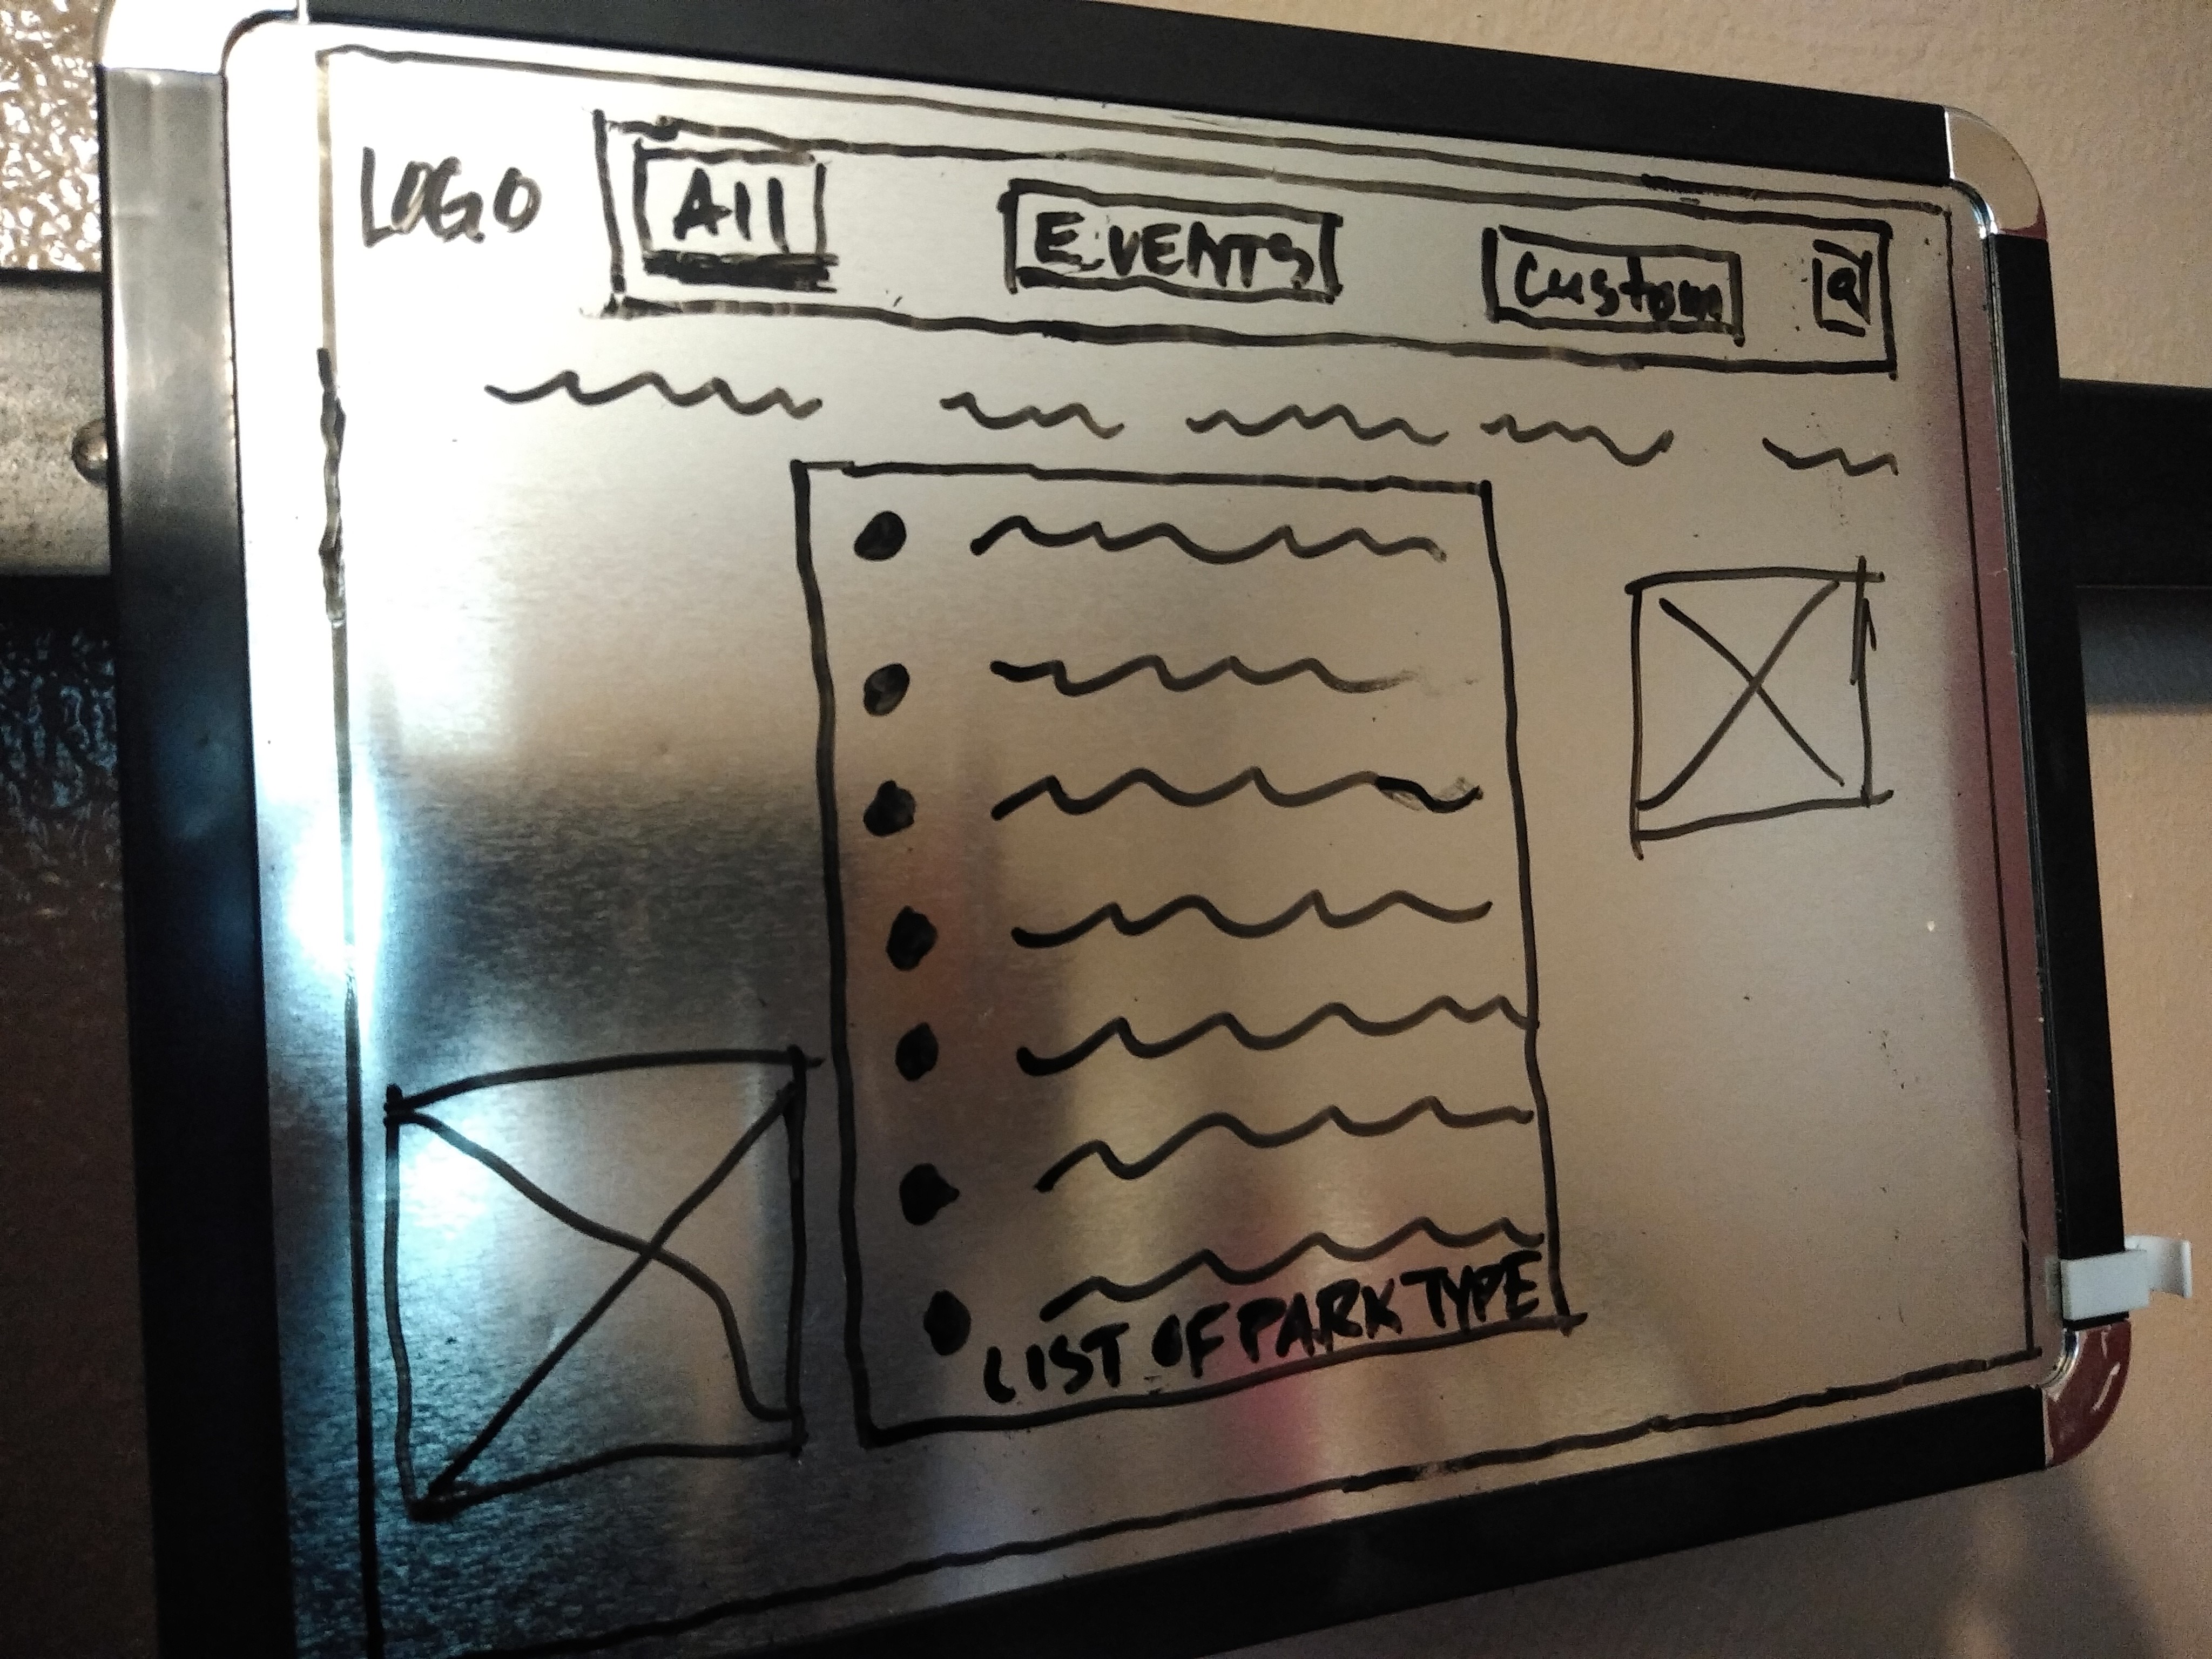 LOGO
All
EVENTS
Custom
LIST OF PARK TYPE